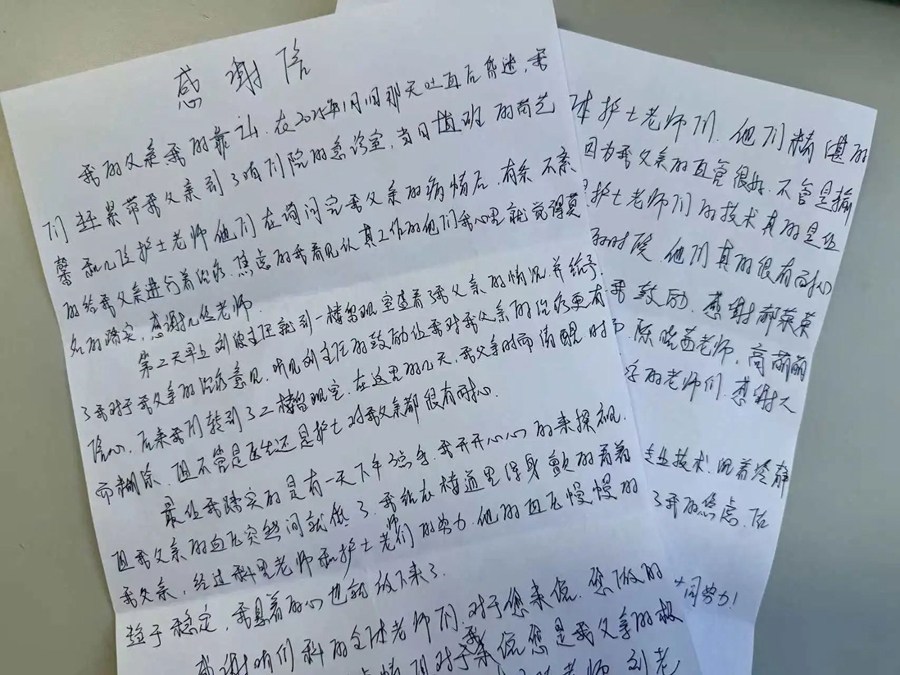 感谢信
我的父亲我的靠山.在2025年1月1日那天吐血后昏迷,我
们赶累带我父亲到了咱们院的急诊室,当日值班的苟艺
馨和几位护士老师他们在询问完我父亲的病情后,有条不紊
的给我父亲进行着治疗.焦虑的我看见认真工作的他们我心里就觉得莫
名的踏实,感谢几位老师.
第二天早上刘主任就到一楼留观室查看了我父亲的情况,并给予
了我对于我父亲的治疗意见,听见刘主任的鼓励使我对我父亲的治疗更有
信心,后来我们转到了二楼留观室,在这里的几天,我父亲时而清醒时
而糊涂.但不管是医生还是护士对我父亲都很有耐心.
最使我踏实的是有一天下午3点多,我开开心心的来探视.
但我父亲的血压突然间就低了.我站在楼道里浑身颤的看着
我父亲,经过科里老师和护士老师们的努力.他的血压慢慢的
趋于稳定,我悬着的心也就放下来了.
感谢咱们科的全体老师们.对于您来说.您做的
情但对于我来说您是我父亲的救
老师 刘老
体护士老师们.他们精湛的
因为我父亲的血管很.不管是输
护士老师们的技术真的是
的时候 他们真的很有耐心
我鼓励.感谢郝荣荣
陈晓茜老师,高萌萌
的老师们.感谢
专业技术.沉着冷静
了我的焦虑.
同努力!